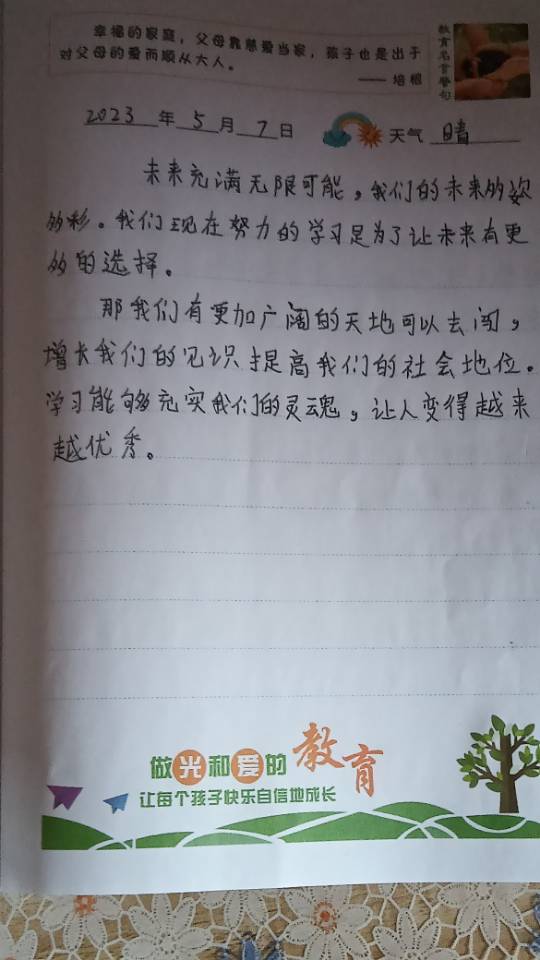 幸福的家庭，父母靠慈爱当家，孩子也是出于
对父母的爱而顺从大人。
—— 培根
教育名言警句
2023 年 5 月 7 日 天气 晴
未来充满无限可能，我们的未来多姿
多彩。我们现在努力的学习是为了让未来有更
多的选择。
那我们有更加广阔的天地可以去闯，
增长我们的见识提高我们的社会地位。
学习能够充实我们的灵魂，让人变得越来
越优秀。
做光和爱的教育
让每个孩子快乐自信地成长